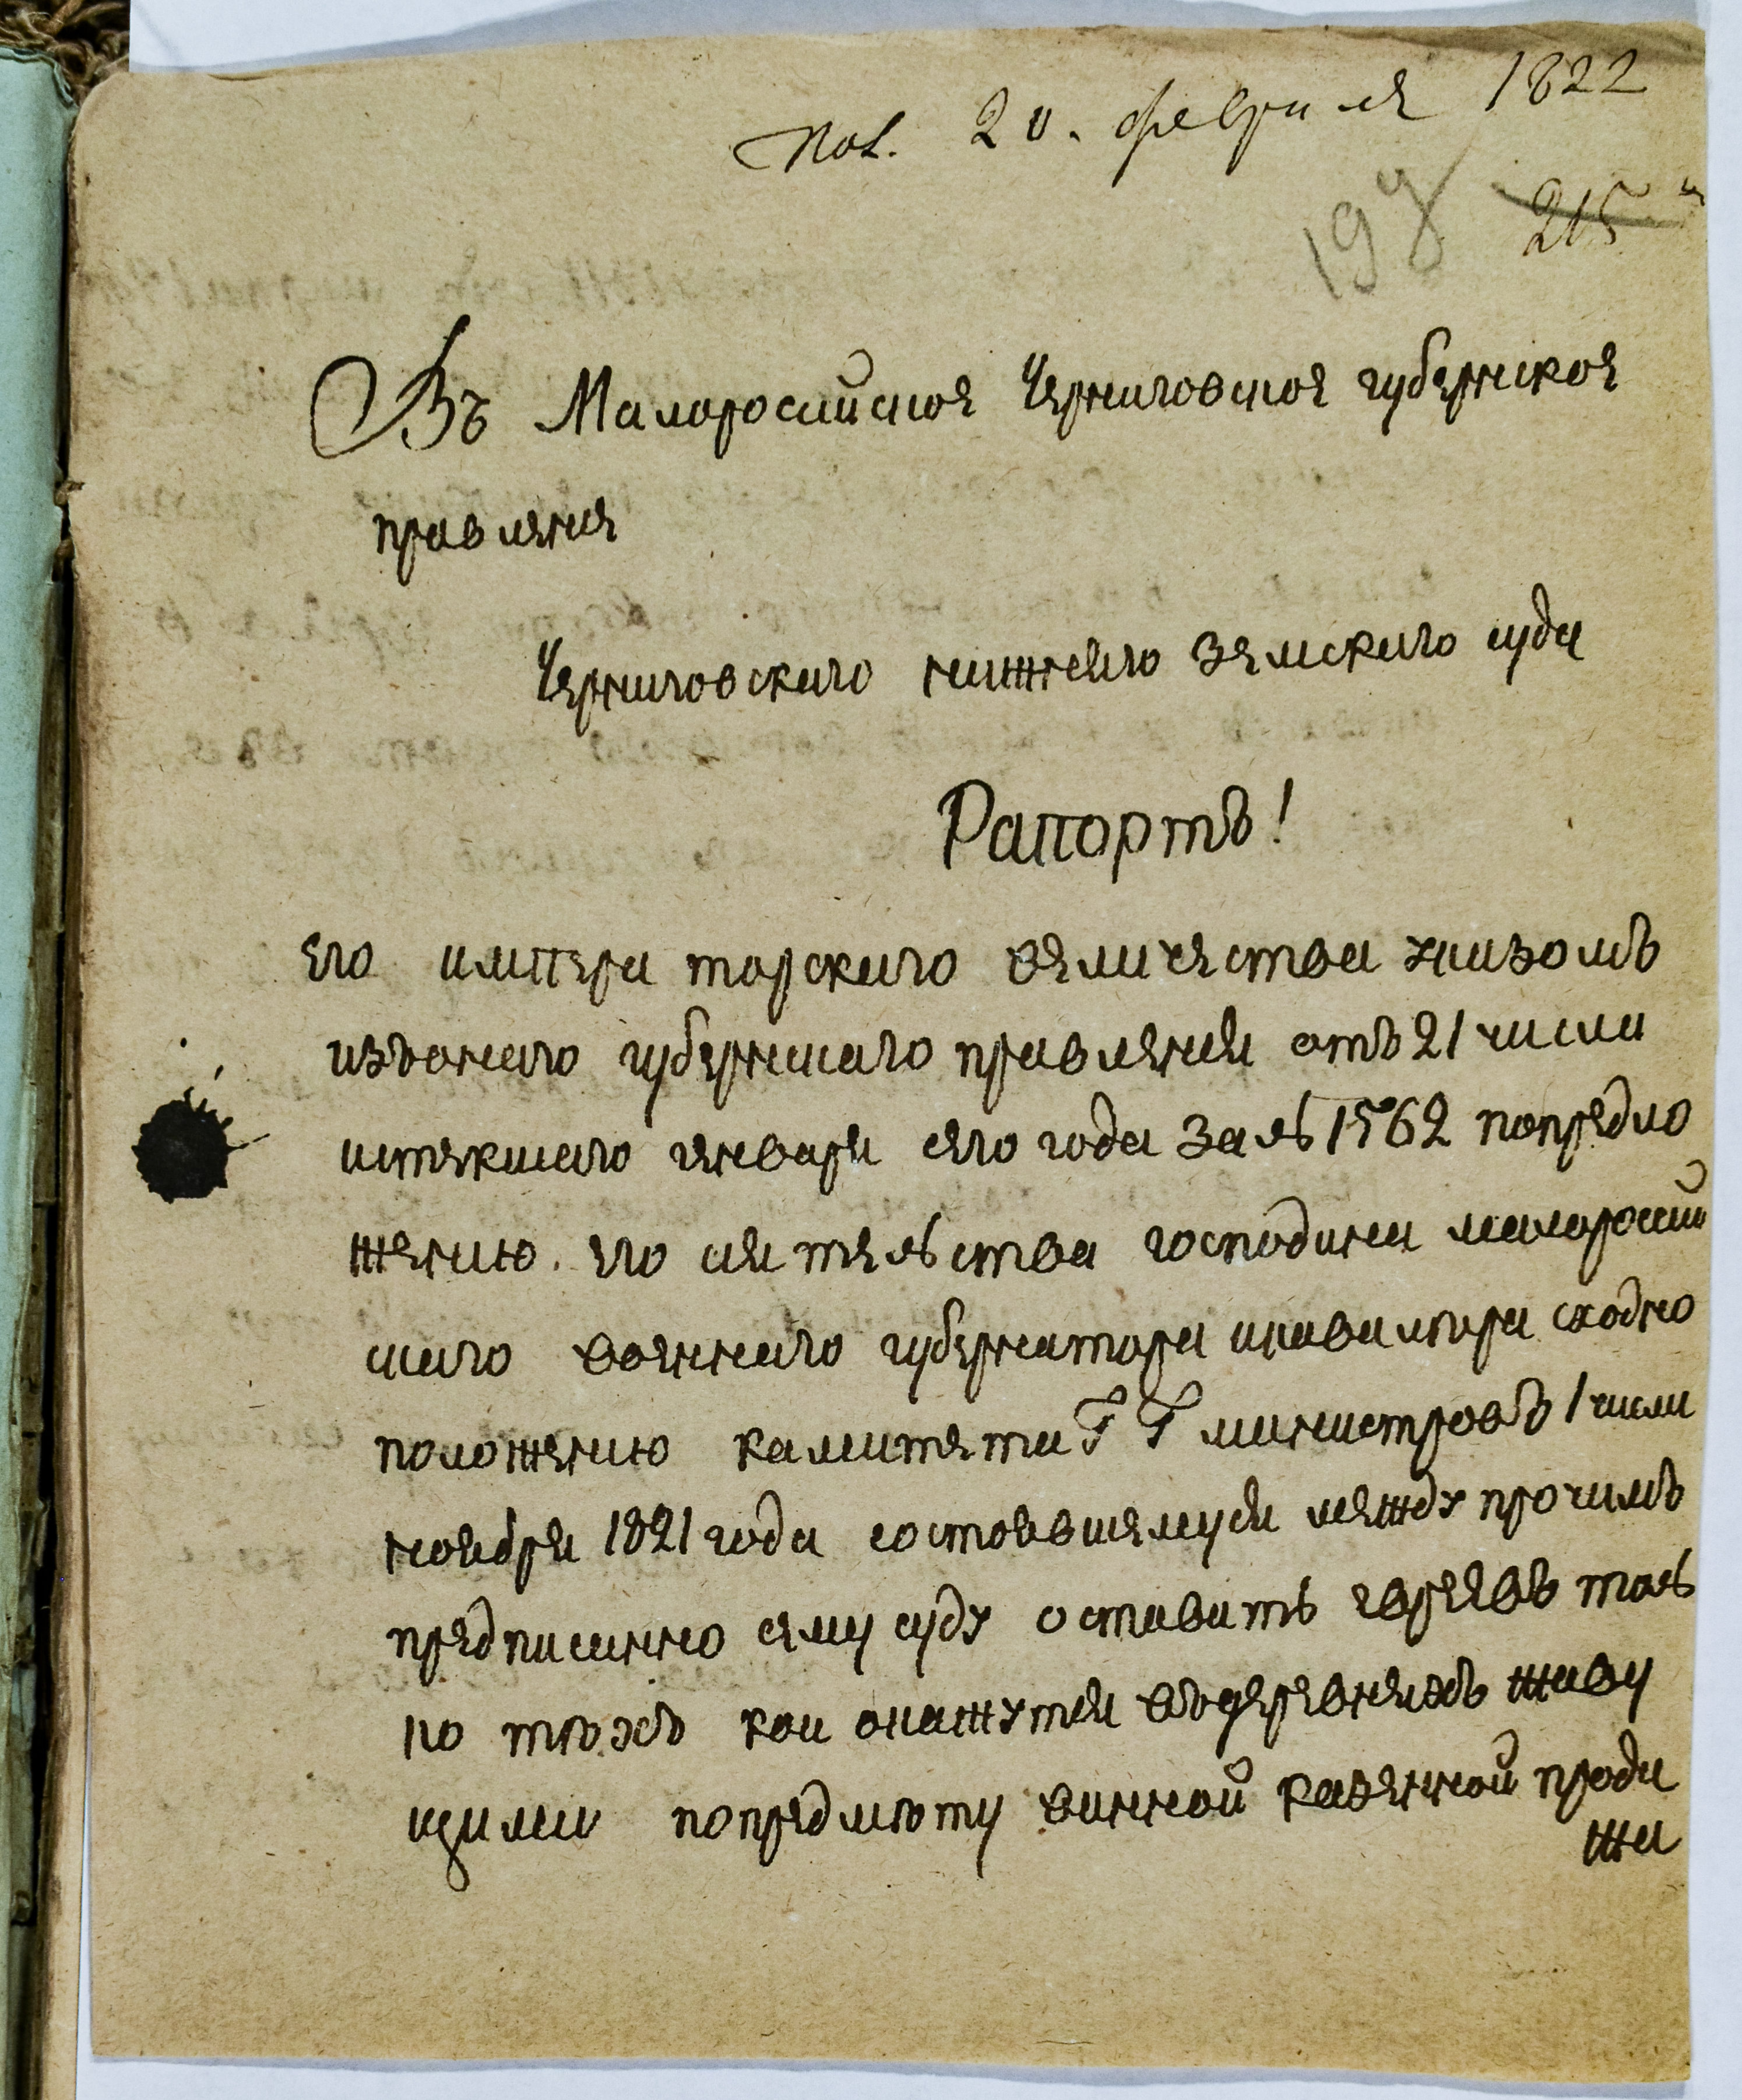 Пол. 20. февраля 1822
198 215
Въ Малоросийское Черниговское губернское
правление
Черниговского нижнего земского суда
Рапортъ!
Его императорского величества указомъ
изъоного губернского правления отъ 21 числа
истекшего генваря сего года за № 1562 попредло
жению его сиятельства господина малоросий
ского военного губернатора икавалера сходно
положению камитета Г Г министровъ 1 числа
ноября 1821 года состоявшемуся между прочимъ
предписанно сему суду оставить евреевъ толь
ко тѣхъ кои окажутся въдеревняхъ живу
щими попредмѣту винной казенной прода
жи